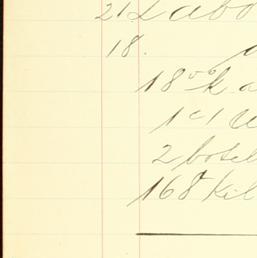 21. Labo
18.
18 00 k a
1 ct
2 botel
168 Kil